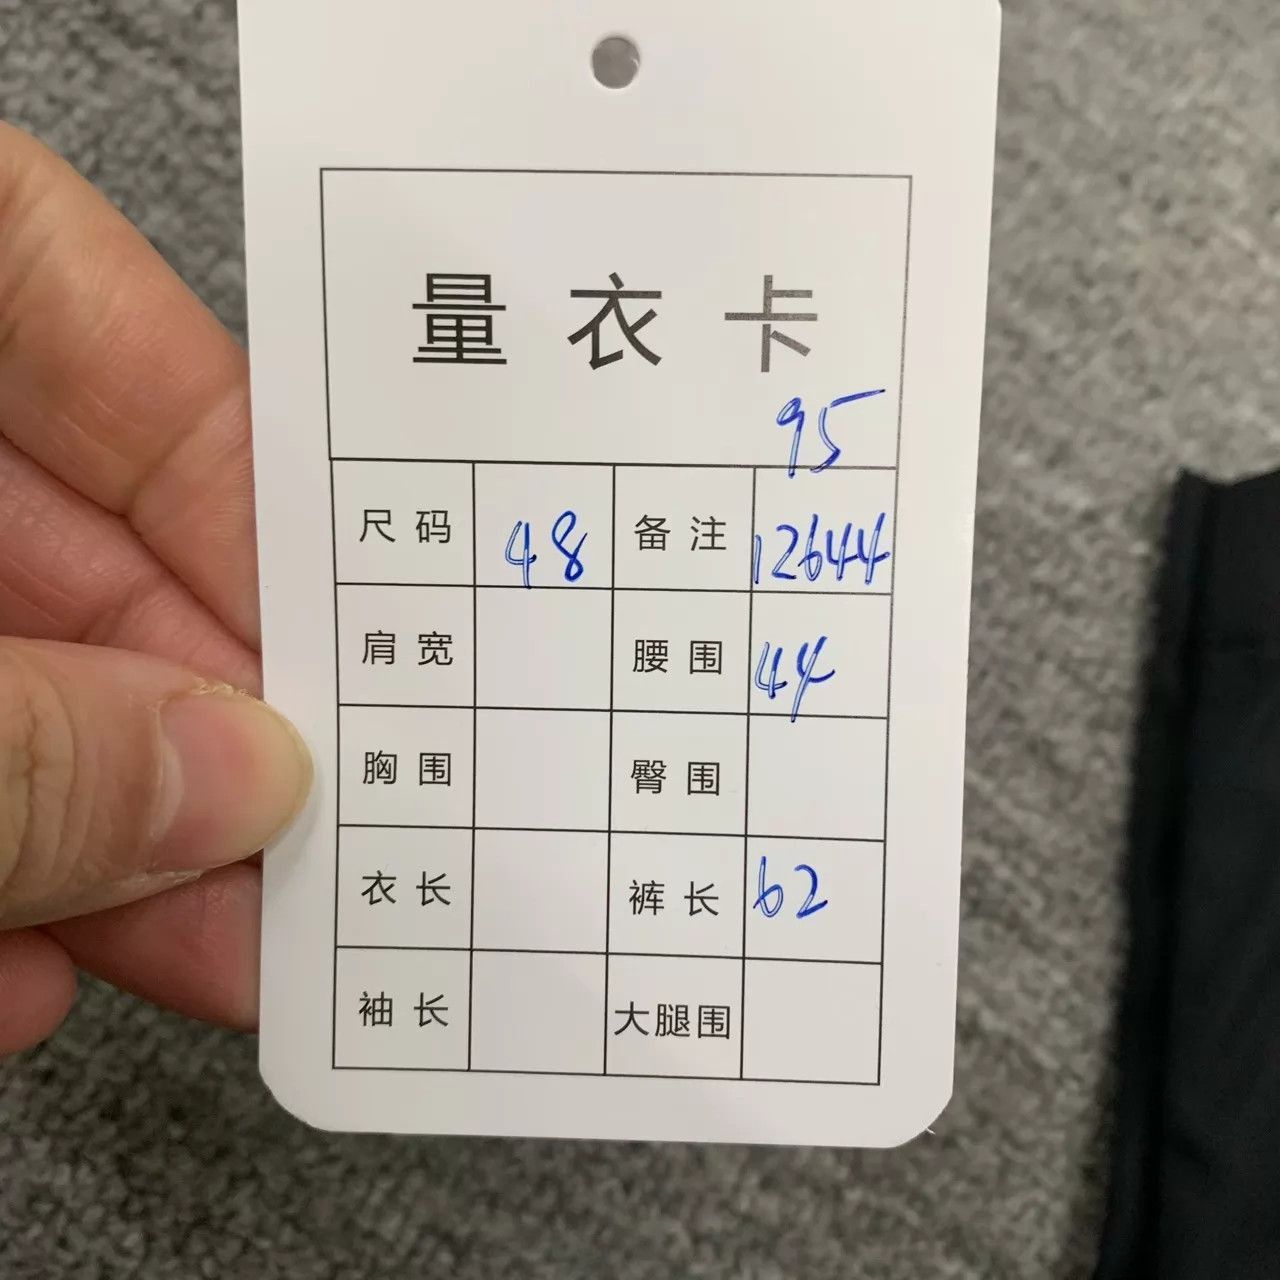 量衣卡
95
尺码 48 备注 12644
肩宽 腰围 44
胸围 臀围
衣长 裤长 62
袖长 大腿围